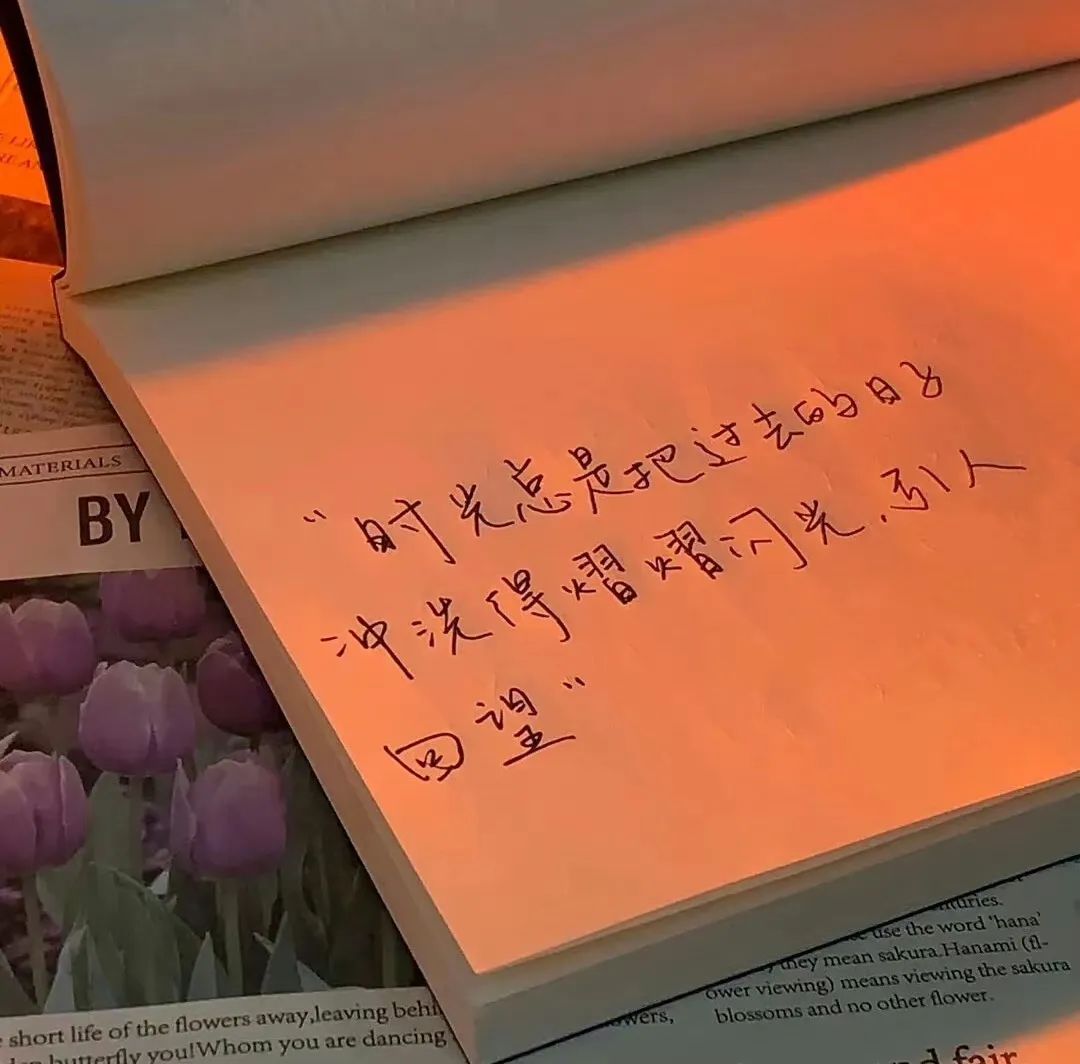 MATERIALS
BY
“时光总是把过去的日子
冲洗得熠熠闪光,引人
回望”
short life of the flowers away,leaving behi
butterfly you!Whom you are dancing
use the word 'hana'
they mean sakura.Hanami (fl-
ower viewing) means viewing the sakura
blossoms and no other flower.
fair